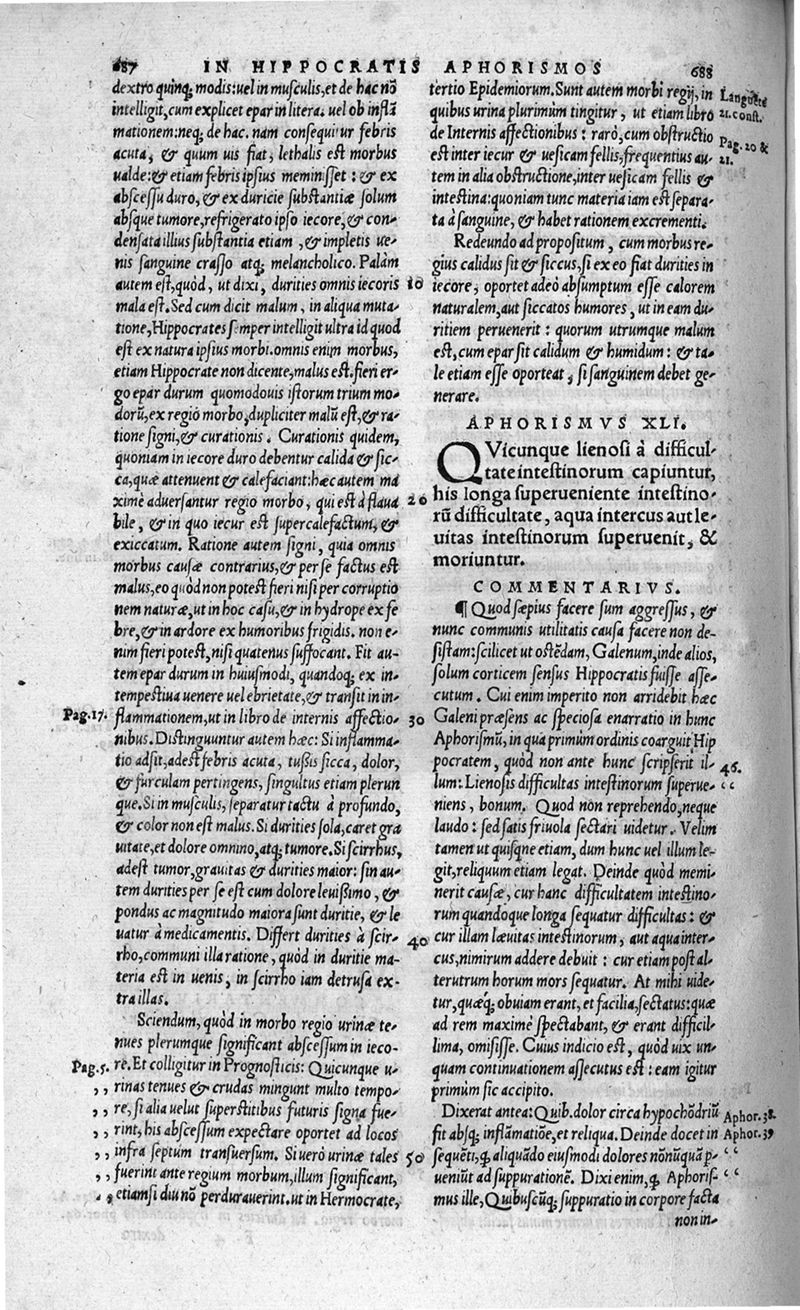 687 IN HIPPOCRATIS APHORISMOS 688
dextro quinq; modis: uel in musculis, et de hac nõ
intelligit, cum explicet epar in litera. uel ob inflã
mationem: neq; de hac. nam consequitur febris
acuta, & quum uis fiat, lethalis est morbus
ualde: & etiam febris ipsius meminisset: & ex
abscessu duro, & ex duricie substantiæ solum
absque tumore, refrigerato ipso iecore, & con-
densata illius substantia etiam, & impletis ue-
nis sanguine crasso atq; melancholico. Palàm
autem est, quòd, ut dixi, durities omnis iecoris
mala est. Sed cum dicit malum, in aliqua muta-
tione, Hippocrates semper intelligit ultra id quod
est ex natura ipsius morbi. omnis enim morbus,
etiam Hippocrate non dicente, malus est. fieri er-
go epar durum quomodouis istorum trium mo-
dorũ, ex regio morbo, dupliciter malũ est, & ra-
tione signi, & curationis. Curationis quidem,
quoniam in iecore duro debentur calida & sic-
ca, quæ attenuent & calefaciant: hæc autem ma
ximè aduersantur regio morbo, qui est à flaua
bile, & in quo iecur est supercalefactum, &
exiccatum. Ratione autem signi, quia omnis
morbus causæ contrarius, & per se factus est
malus, eo quòd non potest fieri nisi per corruptio
nem naturæ, ut in hoc casu, & in hydrope ex fe
bre, & in ardore ex humoribus frigidis. non e-
nim fieri potest, nisi quatenus suffocant. Fit au-
tem epar durum in huiusmodi, quandoq; ex in-
tempestiua uenere uel ebrietate, & transit in in-
Pag. 17. flammationem, ut in libro de internis affectio-
nibus. Distinguuntur autem hæc: Si inflamma-
tio adsit, adest febris acuta, tußis sicca, dolor,
& furculam pertingens, singultus etiam plerun
que. Si in musculis, separatur tactu à profundo,
& color non est malus. Si durities sola, caret gra
uitate, et dolore omnino, atq; tumore. Si scirrhus,
adest tumor, grauitas & durities maior: sin au-
tem durities per se est cum dolore leuißimo, &
pondus ac magnitudo maiora sunt duritie, & le
uatur à medicamentis. Differt durities à scir-
rho, communi illa ratione, quòd in duritie ma-
teria est in uenis, in scirrho iam detrusa ex-
tra illas.
Sciendum, quòd in morbo regio urinæ te-
nues plerumque significant abscessum in ieco-
Pag. 5. re. Et colligitur in Prognosticis: Quicunque u-
,, rinas tenues & crudas mingunt multo tempo-
,, re, si alia uelut superstitibus futuris signa fue-
,, rint, his abscessum expectare oportet ad locos
,, infra septum transuersum. Si uerò urinæ tales
,, fuerint ante regium morbum, illum significant,
,, etiamsi diu nõ perdurauerint. ut in Hermocrate,
tertio Epidemiorum. Sunt autem morbi regij, in
quibus urina plurimùm tingitur, ut etiam libro
de Internis affectionibus: rarò, cum obstructio
est inter iecur & uesicam fellis, frequentius au-
tem in alia obstructione, inter uesicam fellis &
intestina: quoniam tunc materia iam est separa-
ta à sanguine, & habet rationem excrementi.
21. const.
Pag. 20 &
21.
Redeundo ad propositum, cum morbus re-
gius calidus sit & siccus, si ex eo fiat durities in
10 iecore, oportet adeò absumptum esse calorem
naturalem, aut siccatos humores, ut in eam du-
ritiem peruenerit: quorum utrumque malum
est, cum epar sit calidum & humidum: & ta-
le etiam esse oporteat, si sanguinem debet ge-
nerare.
APHORISMVS XLI.
QVicunque lienosi à difficul-
tate intestinorum capiuntur,
20 his longa superueniente intestino-
rũ difficultate, aqua intercus aut le-
uitas intestinorum superuenit, &
moriuntur.
COMMENTARIVS.
¶ Quod sæpius facere sum aggressus, &
nunc communis utilitatis causa facere non de-
sistam: scilicet ut ostẽdam, Galenum, inde alios,
solum corticem sensus Hippocratis fuisse asse-
cutum. Cui enim imperito non arridebit hæc
30 Galeni præsens ac speciosa enarratio in hunc
Aphorismũ, in qua primùm ordinis coarguit Hip
pocratem, quòd non ante hunc scripserit il-
lum: Lienosis difficultas intestinorum superue-
niens, bonum. Quod non reprehendo, neque
laudo: sed satis friuola sectari uidetur. Velim
tamen ut quisque etiam, dum hunc uel illum le-
git, reliquum etiam legat. Deinde quòd memi-
nerit causæ, cur hanc difficultatem intestino-
rum quandoque longa sequatur difficultas: &
40 cur illam læuitas intestinorum, aut aqua inter-
cus, nimirum addere debuit: cur etiam post al-
terutrum horum mors sequatur. At mihi uide-
tur, quæq; obuiam erant, et facilia, sectatus: quæ
ad rem maximè spectabant, & erant difficil-
lima, omisisse. Cuius indicio est, quòd uix un-
quam continuationem assecutus est: eam igitur
primùm sic accipito.
45.
‘‘
Dixerat antea: Quib. dolor circa hypochõdriũ
fit absq; inflãmatiõe, et reliqua. Deinde docet in
50 sequẽti, ꝙ aliquãdo eiusmodi dolores nõnũquã p-
ueniũt ad suppurationẽ. Dixi enim, ꝙ Aphoris-
mus ille, Quibuscũq; suppuratio in corpore facta
Aphor. 38.
Aphor. 39
‘‘
‘‘
non in-